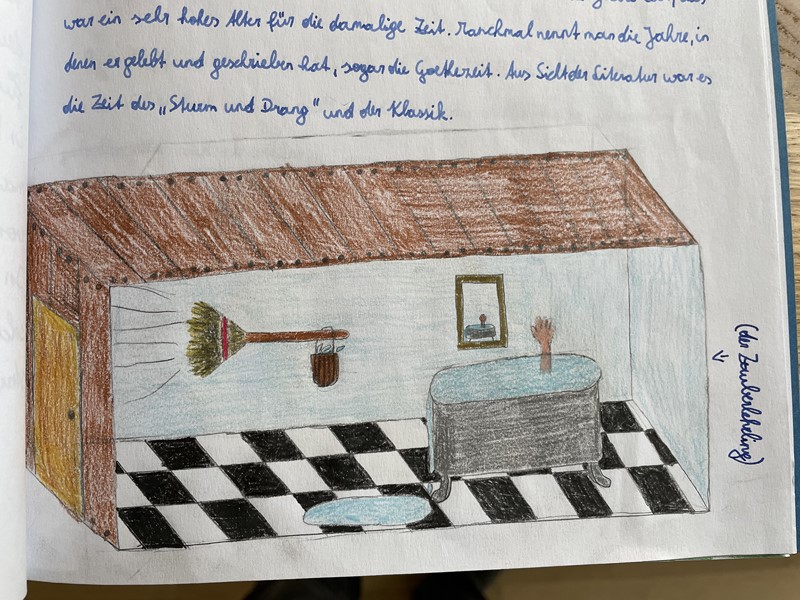 war ein sehr hohes Alter für die damalige Zeit. Manchmal nennt man die Jahre, in
denen er gelebt und geschrieben hat, sogar die Goethezeit. Aus Sicht der Literatur war es
die Zeit des „Sturm und Drang" und der Klassik.
(der Zauberlehrling)